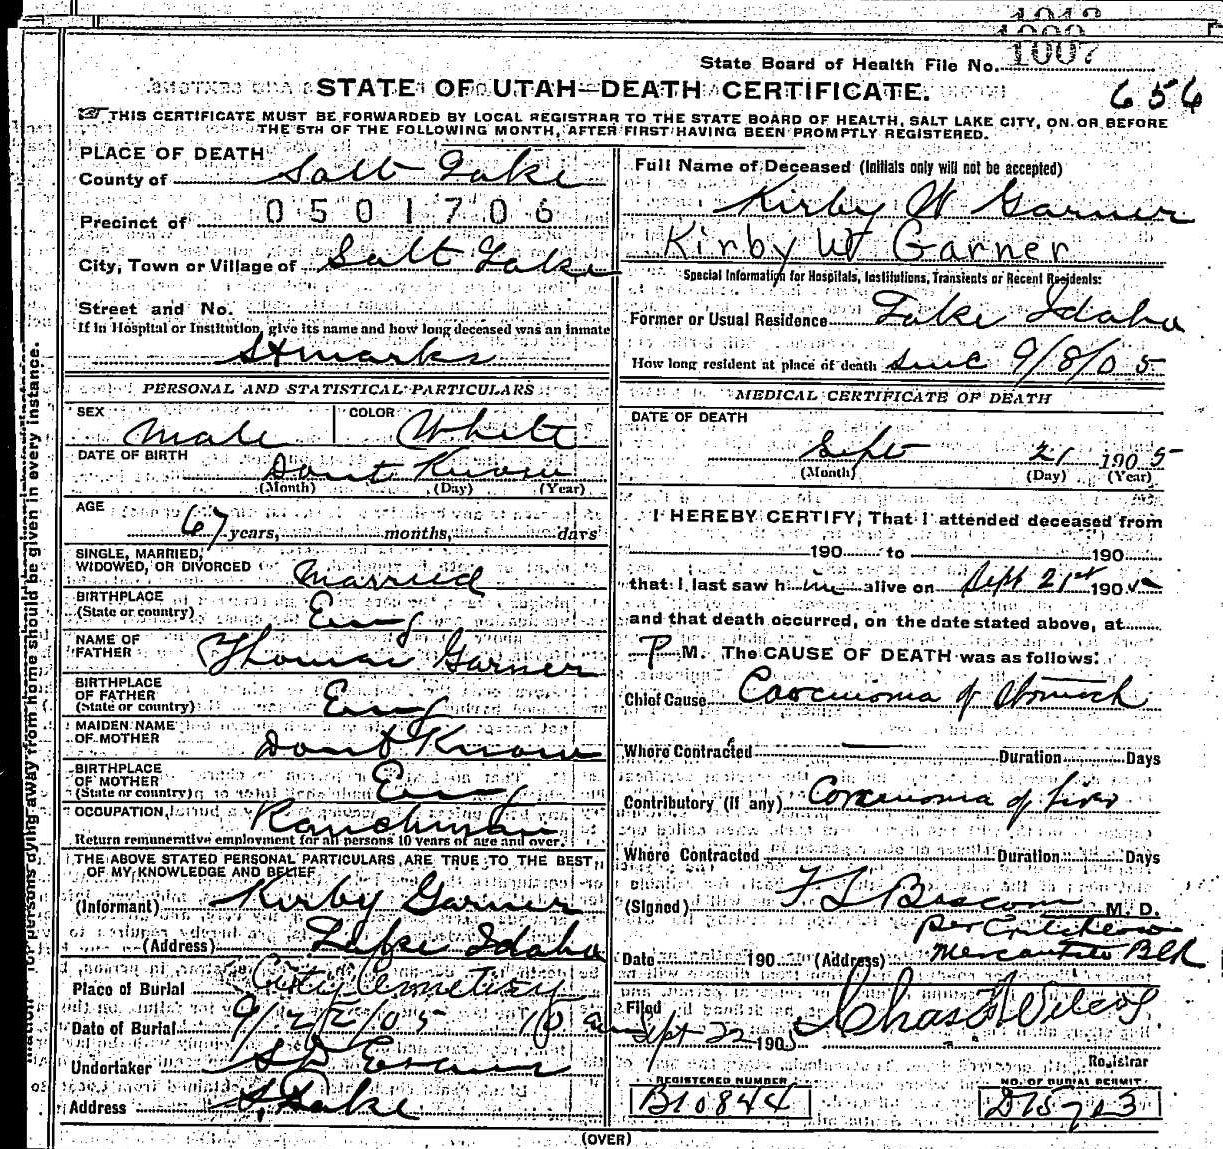 1007
State Board of Health File No.
656
STATE OF UTAH—DEATH CERTIFICATE.
THIS CERTIFICATE MUST BE FORWARDED BY LOCAL REGISTRAR TO THE STATE BOARD OF HEALTH, SALT LAKE CITY, ON OR BEFORE
THE 5TH OF THE FOLLOWING MONTH, AFTER FIRST HAVING BEEN PROMPTLY REGISTERED.
PLACE OF DEATH
County of Salt Lake
Precinct of 0501706
City, Town or Village of Salt Lake
Street and No.
If in Hospital or Institution, give its name and how long deceased was an inmate
St Marks
PERSONAL AND STATISTICAL PARTICULARS
SEX Male COLOR White
DATE OF BIRTH Dont Know
(Month) (Day) (Year)
AGE
67 years, months, days
SINGLE, MARRIED,
WIDOWED, OR DIVORCED Married
BIRTHPLACE
(State or country) Eng
NAME OF
FATHER Thomas Garner
BIRTHPLACE
OF FATHER
(State or country) Eng
MAIDEN NAME
OF MOTHER Dont Know
BIRTHPLACE
OF MOTHER
(State or country) Eng
OCCUPATION, Ranchman
Return remunerative employment for all persons 10 years of age and over.
THE ABOVE STATED PERSONAL PARTICULARS ARE TRUE TO THE BEST
OF MY KNOWLEDGE AND BELIEF
(Informant) Kirby Garner
(Address) Lake Idaho
Place of Burial City Cemetery
Date of Burial 9/22/05 10 am
Undertaker S D Evans
Address S. Lake
Full Name of Deceased (Initials only will not be accepted)
Kirby W Garner
Kirby W Garner
Special Information for Hospitals, Institutions, Transients or Recent Residents:
Former or Usual Residence Lake Idaho
How long resident at place of death since 9/8/05
MEDICAL CERTIFICATE OF DEATH
DATE OF DEATH
Sept 21 1905
(Month) (Day) (Year)
I HEREBY CERTIFY, That I attended deceased from
190 to 190
that I last saw him alive on Sept 21st 1905
and that death occurred, on the date stated above, at
P M. The CAUSE OF DEATH was as follows:
Chief Cause Carcinoma of Stomach
Where Contracted — Duration Days
Contributory (if any) Carcinoma of liver
Where Contracted Duration Days
(Signed) F L Bascom M. D.
per
Date 190 (Address) Mercantile Blk
Filed
Sept 22 1905 Chas F Wilcox
Registrar
REGISTERED NUMBER NO. OF BURIAL PERMIT
B10844
(OVER)
for persons dying away from home should be given in every instance.